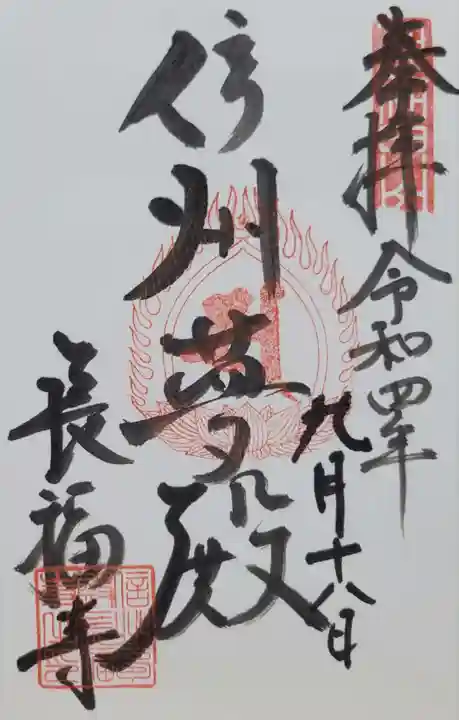 奉拝
令和四年
九月十八日
信州夢殿
長福寺